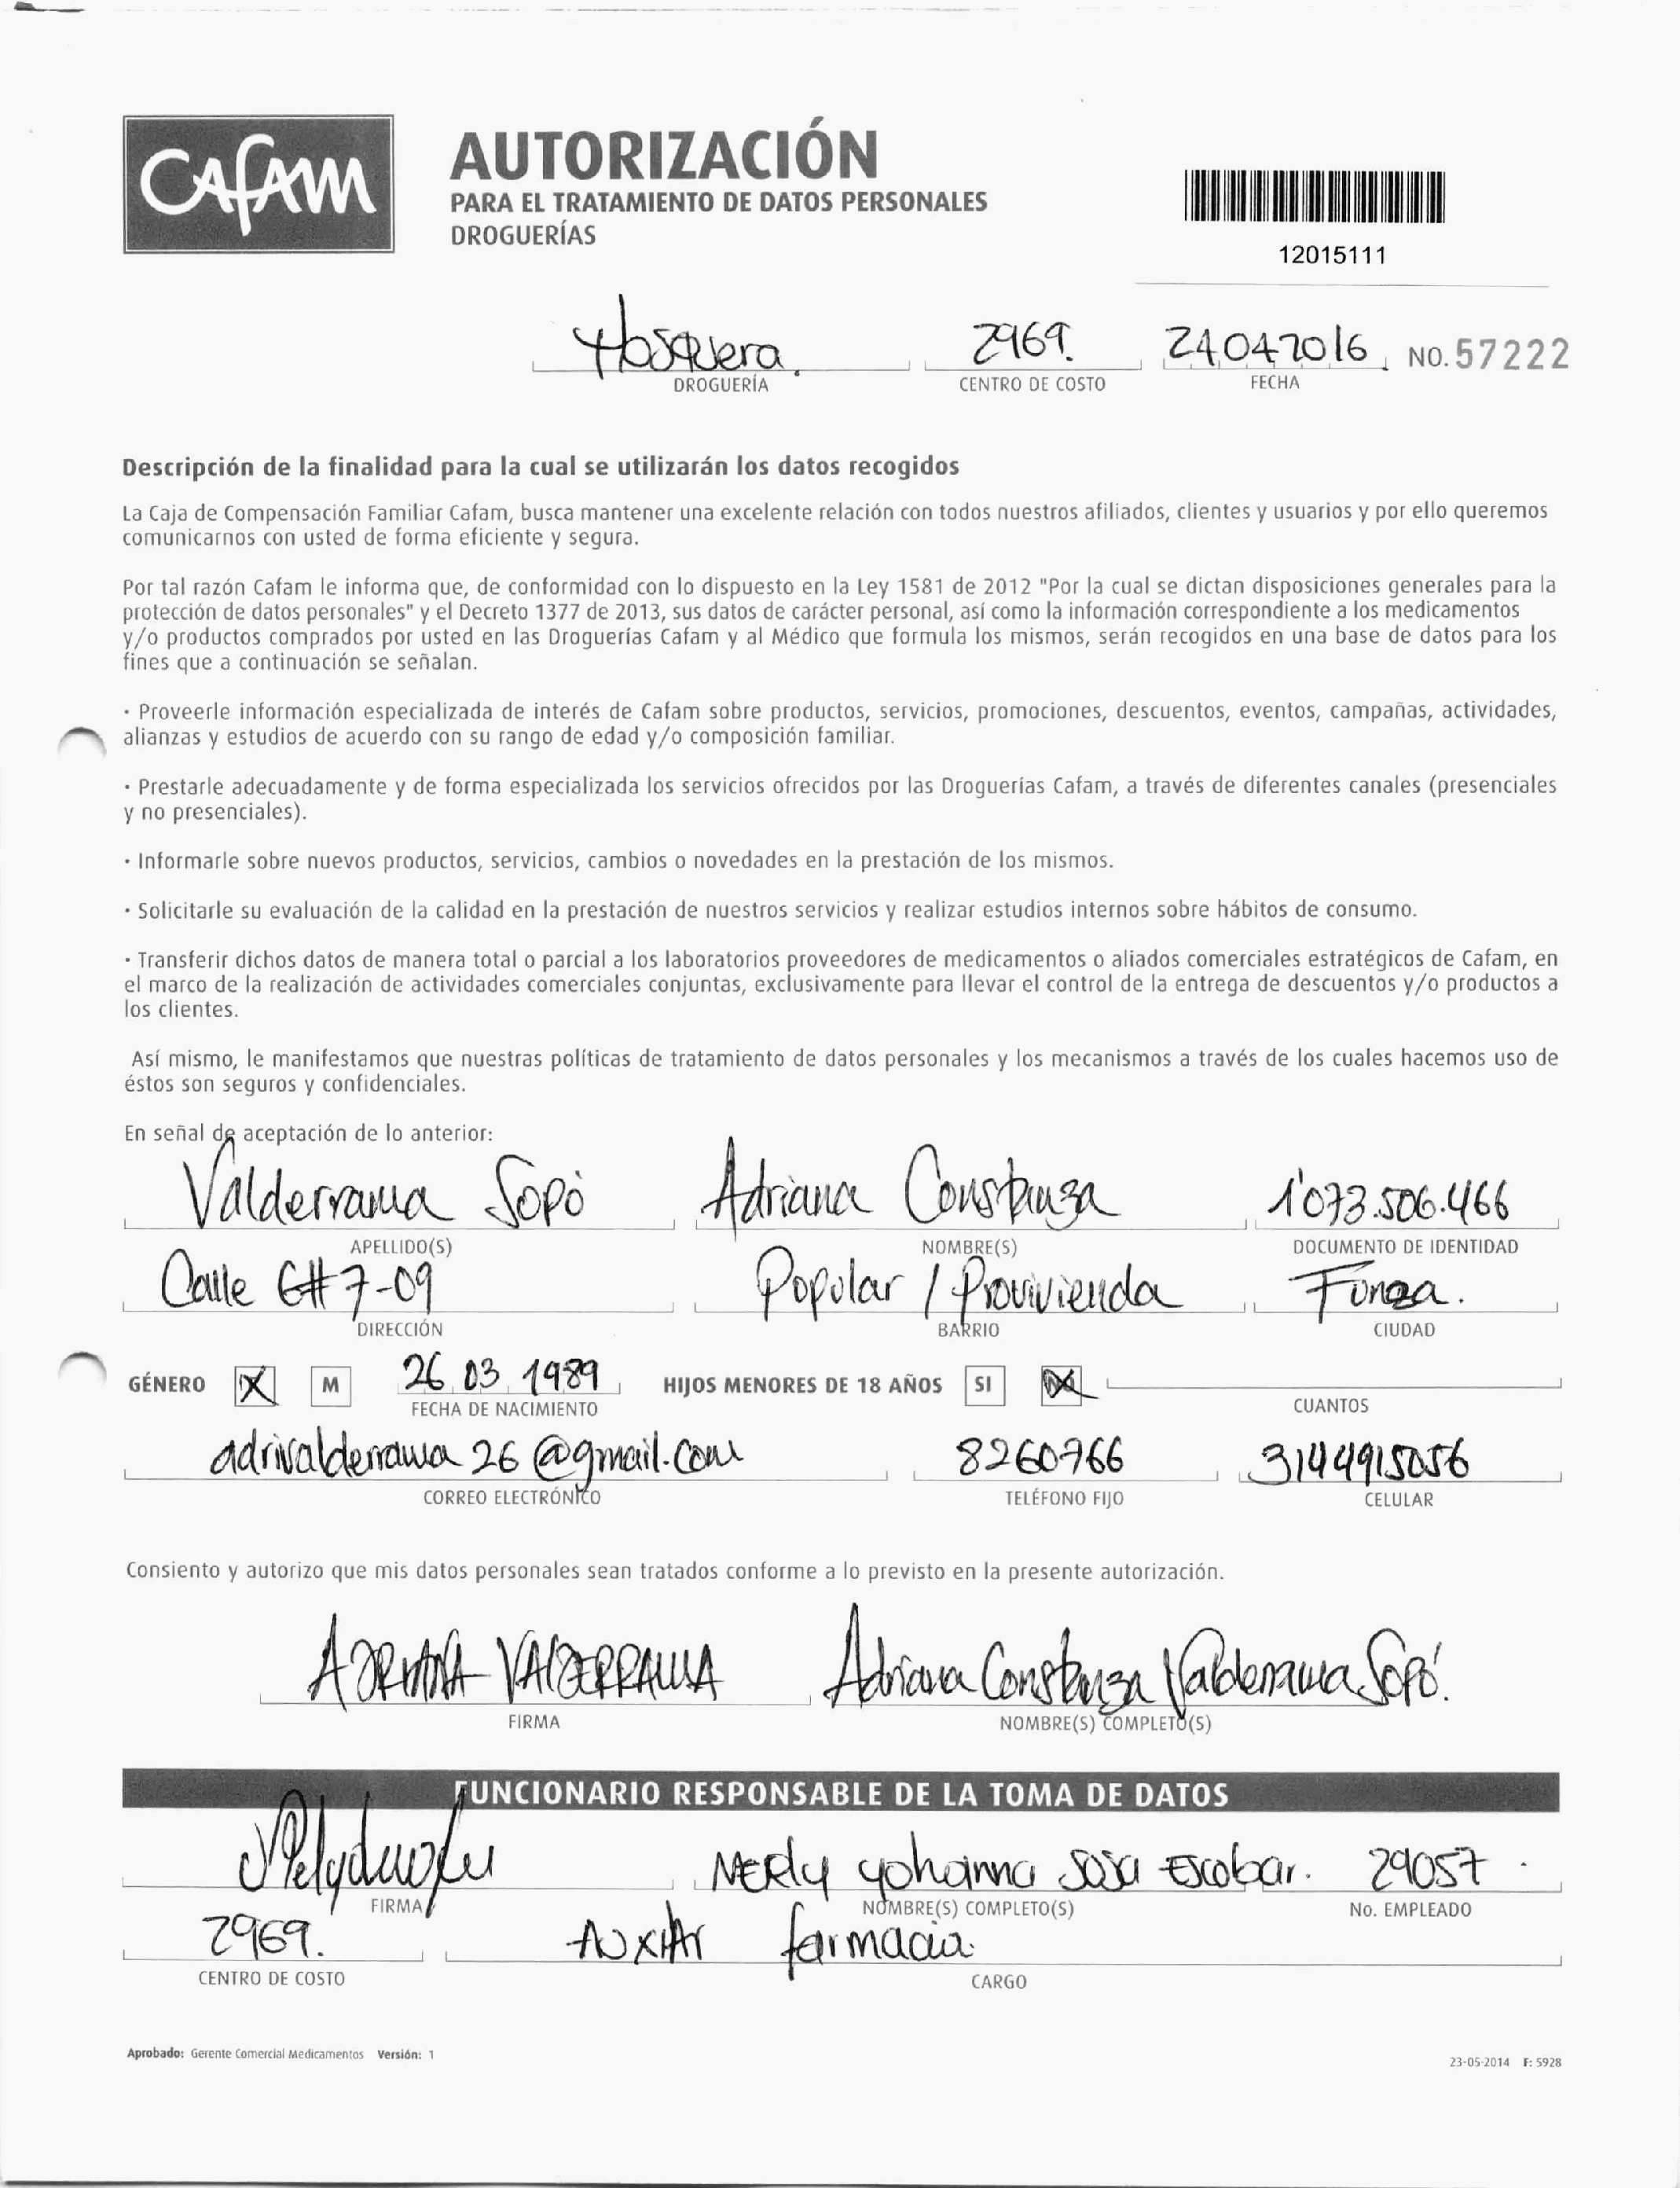 Cafam
AUTORIZACIÓN
PARA EL TRATAMIENTO DE DATOS PERSONALES
DROGUERÍAS
12015111
Mosquera. 2969. 24 04 2016 NO. 57222
DROGUERÍA CENTRO DE COSTO FECHA
Descripción de la finalidad para la cual se utilizarán los datos recogidos
La Caja de Compensación Familiar Cafam, busca mantener una excelente relación con todos nuestros afiliados, clientes y usuarios y por ello queremos
comunicarnos con usted de forma eficiente y segura.
Por tal razón Cafam le informa que, de conformidad con lo dispuesto en la Ley 1581 de 2012 "Por la cual se dictan disposiciones generales para la
protección de datos personales" y el Decreto 1377 de 2013, sus datos de carácter personal, así como la información correspondiente a los medicamentos
y/o productos comprados por usted en las Droguerías Cafam y al Médico que formula los mismos, serán recogidos en una base de datos para los
fines que a continuación se señalan.
· Proveerle información especializada de interés de Cafam sobre productos, servicios, promociones, descuentos, eventos, campañas, actividades,
alianzas y estudios de acuerdo con su rango de edad y/o composición familiar.
· Prestarle adecuadamente y de forma especializada los servicios ofrecidos por las Droguerías Cafam, a través de diferentes canales (presenciales
y no presenciales).
· Informarle sobre nuevos productos, servicios, cambios o novedades en la prestación de los mismos.
· Solicitarle su evaluación de la calidad en la prestación de nuestros servicios y realizar estudios internos sobre hábitos de consumo.
· Transferir dichos datos de manera total o parcial a los laboratorios proveedores de medicamentos o aliados comerciales estratégicos de Cafam, en
el marco de la realización de actividades comerciales conjuntas, exclusivamente para llevar el control de la entrega de descuentos y/o productos a
los clientes.
Así mismo, le manifestamos que nuestras políticas de tratamiento de datos personales y los mecanismos a través de los cuales hacemos uso de
éstos son seguros y confidenciales.
En señal de aceptación de lo anterior:
Valderrama Sopó Adriana Constanza 1'073.506.466
APELLIDO(S) NOMBRE(S) DOCUMENTO DE IDENTIDAD
Calle 6#7-09 Popular / Provivienda Funza.
DIRECCIÓN BARRIO CIUDAD
GÉNERO X M 26 03 1989 HIJOS MENORES DE 18 AÑOS SI NO X
FECHA DE NACIMIENTO CUANTOS
adrivalderrama26@gmail.com 8260766 3144915056
CORREO ELECTRÓNICO TELÉFONO FIJO CELULAR
Consiento y autorizo que mis datos personales sean tratados conforme a lo previsto en la presente autorización.
ADRIANA VALDERRAMA Adriana Constanza Valderrama Sopó.
FIRMA NOMBRE(S) COMPLETO(S)
FUNCIONARIO RESPONSABLE DE LA TOMA DE DATOS
Nerly yohanna Sosa Escobar. 29057
FIRMA NOMBRE(S) COMPLETO(S) No. EMPLEADO
2969. Auxiliar farmacia
CENTRO DE COSTO CARGO
Aprobado: Gerente Comercial Medicamentos Versión: 1
23-05-2014 F: 5928